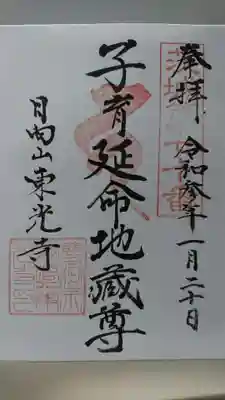 奉拝 令和参年一月二十日
子育延命地蔵尊
日向山東光寺